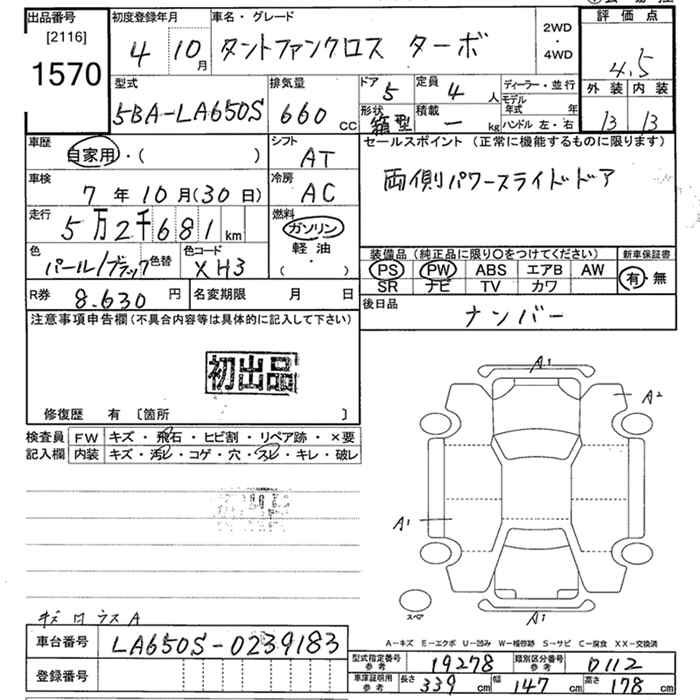 出品番号 [2116] 1570
初度登録年月 4 10月
車名・グレード タントファンクロス ターボ
2WD・4WD
評価点 4.5
外装 内装
13 13
型式 5BA-LA650S
排気量 660 cc
ドア 5
定員 4 人
形状 箱型
積載 ー kg
ディーラー・並行
モデル年式 年
ハンドル 左・右
車歴 自家用・( )
シフト AT
セールスポイント (正常に機能するものに限ります)
両側パワースライドドア
車検 7年10月(30日)
冷房 AC
走行 5万2千681 km
燃料 ガソリン・軽油・( )
色 パール/ブラック 色替
色コード XH3
装備品 (純正品に限り〇をつけてください)
PS PW ABS エアB AW
SR ナビ TV カワ
新車保証書 有・無
R券 8.630 円
名変期限 月 日
後日品 ナンバー
注意事項申告欄 (不具合内容等は具体的に記入して下さい)
初出品
修復歴 有 [箇所 ]
検査員記入欄
FW キズ・飛石・ヒビ割・リペア跡・×要
内装 キズ・汚レ・コゲ・穴・スレ・キレ・破レ
A1
A2
A1
スペア
A1
A-キズ E-エクボ U-凹み W-補修跡 S-サビ C-腐食 XX-交換済
車台番号 LA650S-0239183
登録番号
型式指定番号参考 19278
類別区分番号参考 0112
車庫証明用参考 長さ 339 cm 幅 147 cm 高さ 178 cm